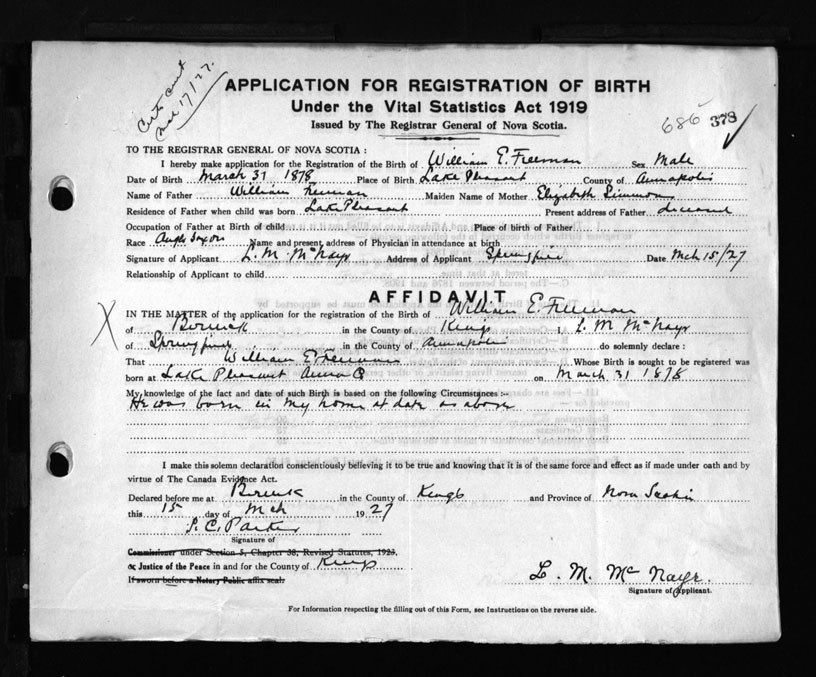 Certs cert
Mch 17/27.
APPLICATION FOR REGISTRATION OF BIRTH
Under the Vital Statistics Act 1919
Issued by The Registrar General of Nova Scotia.
686 373
TO THE REGISTRAR GENERAL OF NOVA SCOTIA:
I hereby make application for the Registration of the Birth of William E. Freeman Sex Male
Date of Birth March 31 1878 Place of Birth Lake Pleasant County of Annapolis
Name of Father William Freeman Maiden Name of Mother Elizabeth
Residence of Father when child was born Lake Pleasant Present address of Father deceased
Occupation of Father at Birth of child Place of birth of Father
Race Anglo Saxon Name and present address of Physician in attendance at birth
Signature of Applicant L. M. McNayr Address of Applicant Springfield Date Mch 15/27
Relationship of Applicant to child
AFFIDAVIT
IN THE MATTER of the application for the registration of the Birth of William E. Freeman
of Berwick in the County of Kings I, L. M. McNayr
of Springfield in the County of Annapolis do solemnly declare:
That William E Freeman Whose Birth is sought to be registered was
born at Lake Pleasant Anna Co on March 31 1878
My knowledge of the fact and date of such Birth is based on the following Circumstances:-
He was born in my home at date as above
I make this solemn declaration conscientiously believing it to be true and knowing that it is of the same force and effect as if made under oath and by
virtue of The Canada Evidence Act.
Declared before me at Berwick in the County of Kings and Province of Nova Scotia
this 15 day of Mch 1927
S. C. Parker
Signature of
Commissioner under Section 5, Chapter 38, Revised Statutes, 1923.
or Justice of the Peace in and for the County of Kings
If sworn before a Notary Public affix seal.
L. M. McNayr.
Signature of Applicant.
For Information respecting the filling out of this Form, see Instructions on the reverse side.